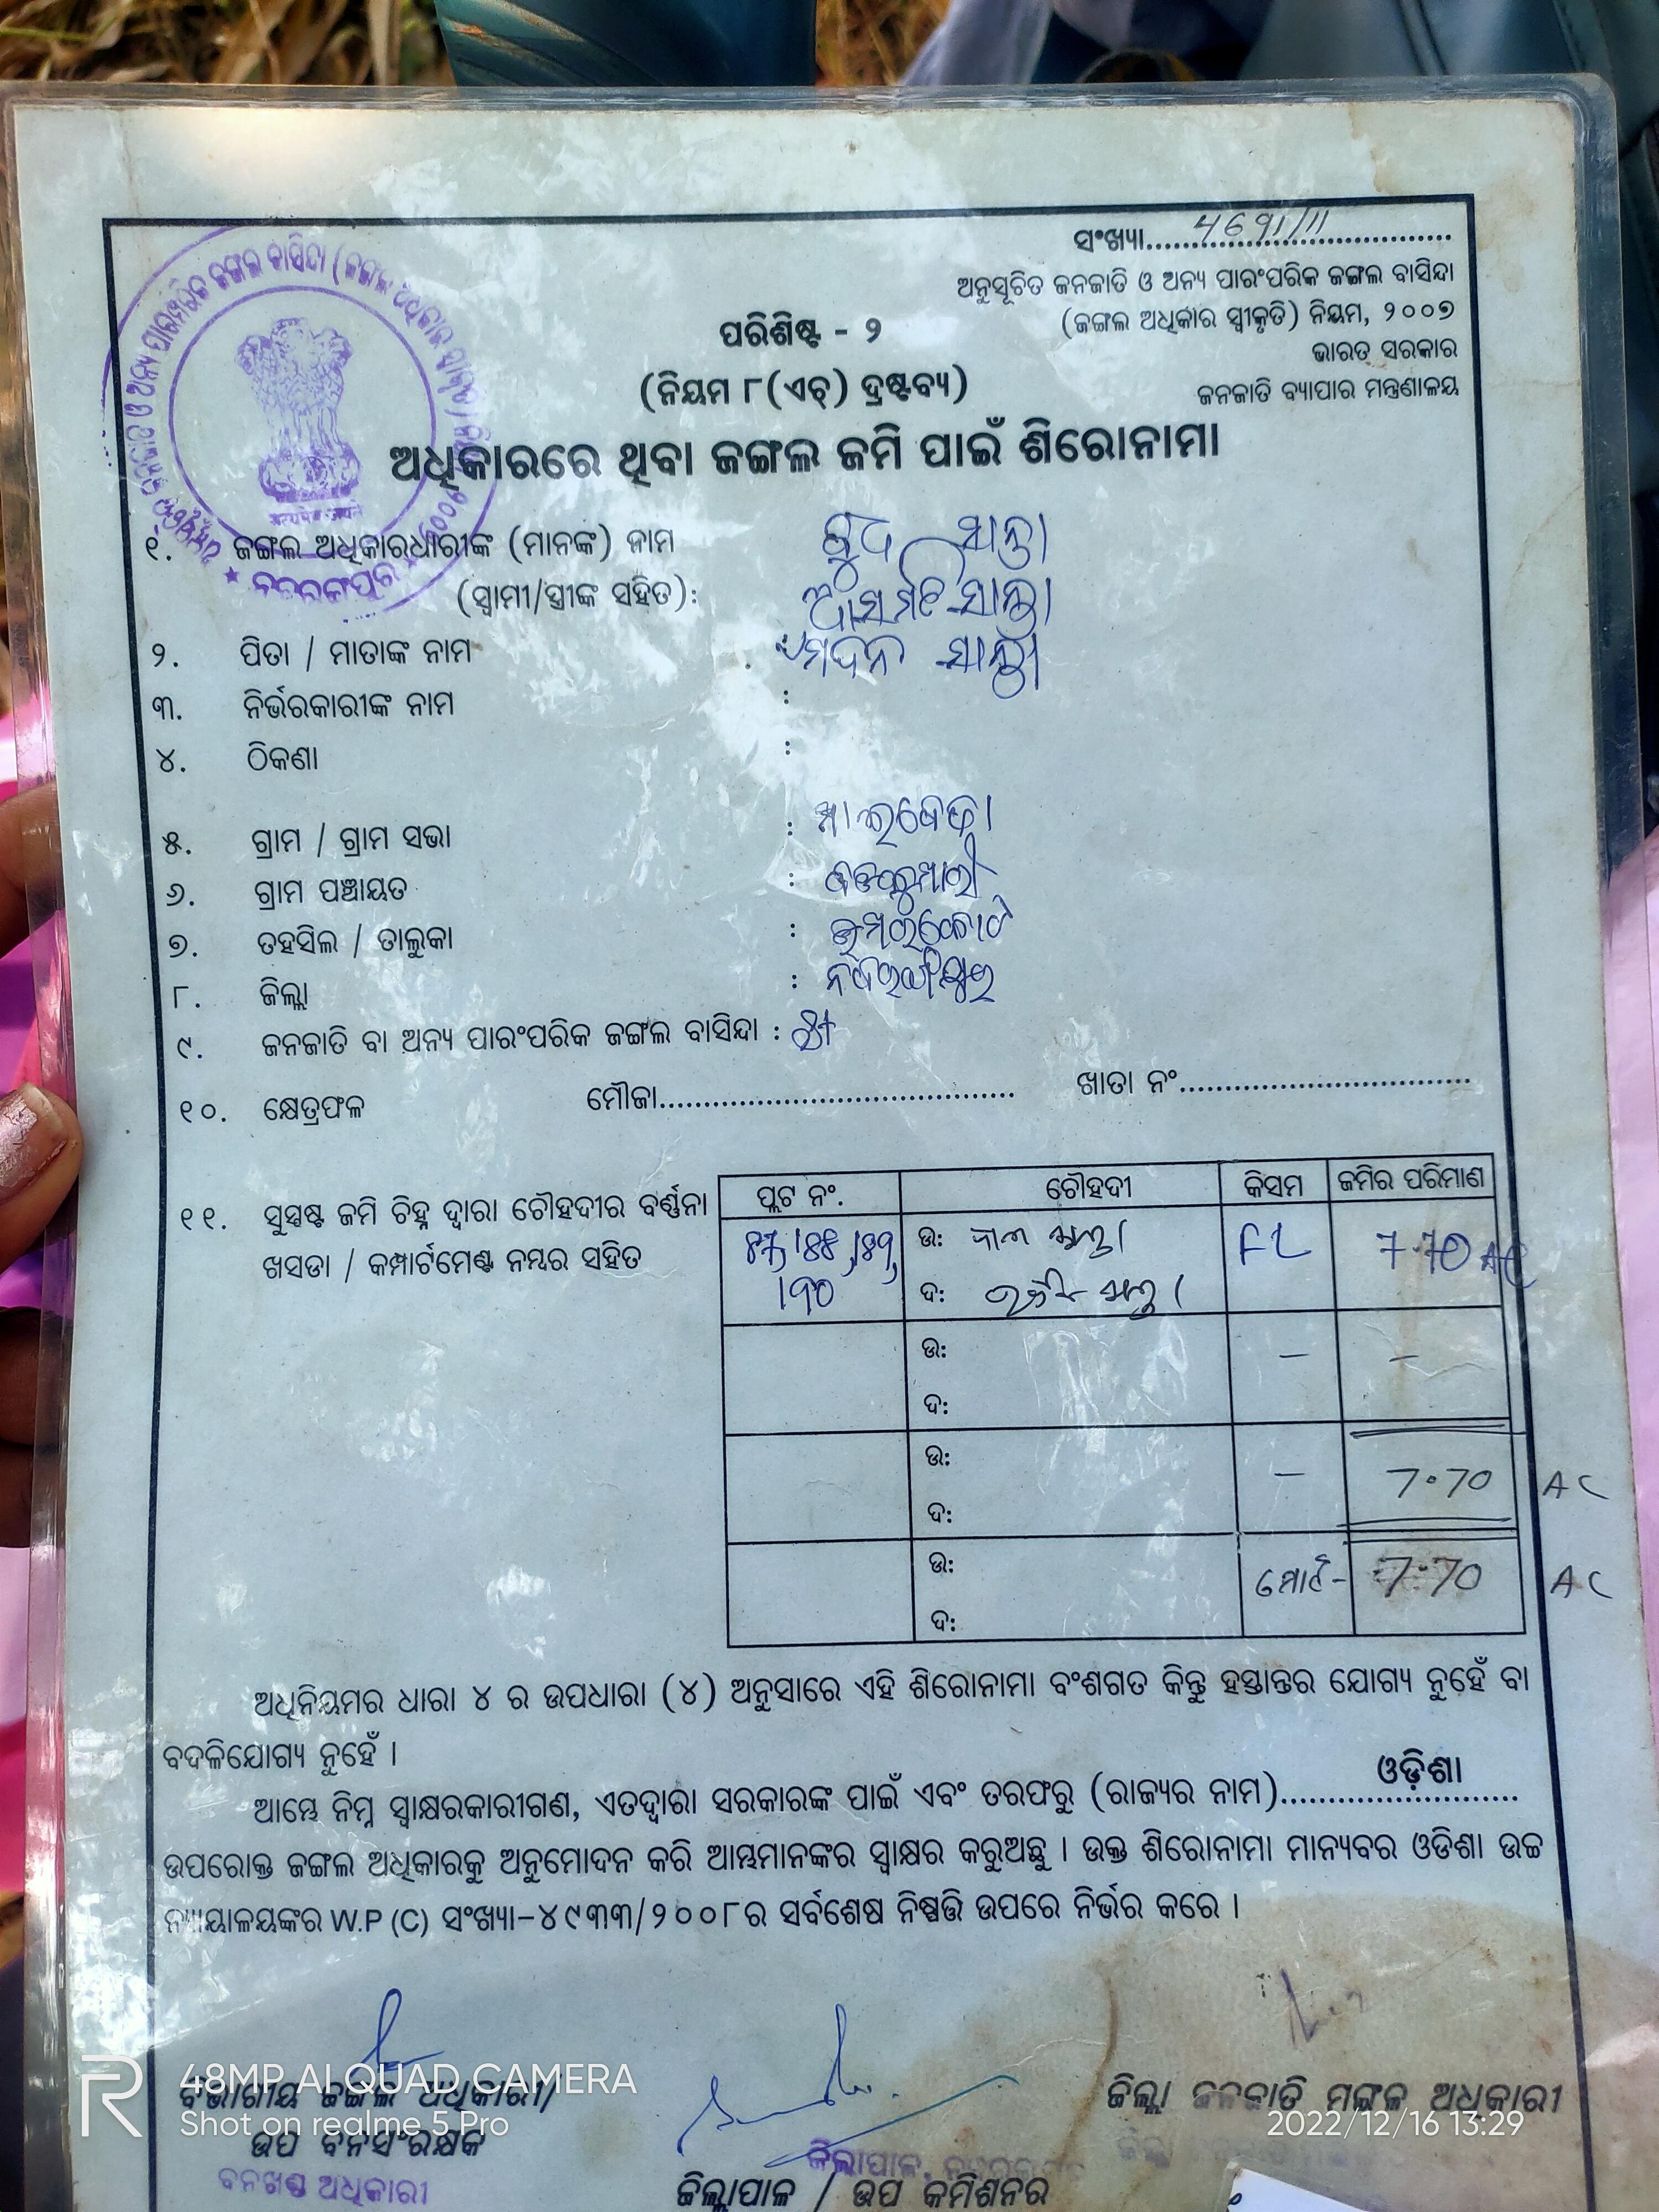 ସଂଖ୍ୟା..................................
ଅନୁସୂଚିତ ଜନଜାତି ଓ ଅନ୍ୟ ପାରଂପରିକ ଜଙ୍ଗଲ ବାସିନ୍ଦା
(ଜଙ୍ଗଲ ଅଧିକାର ସ୍ୱୀକୃତି) ନିୟମ, ୨୦୦୭
ଭାରତ ସରକାର
ଜନଜାତି ବ୍ୟାପାର ମନ୍ତ୍ରଣାଳୟ
ପରିଶିଷ୍ଟ - ୨
(ନିୟମ ୮(ଏଚ୍) ଦ୍ରଷ୍ଟବ୍ୟ)
ଅଧିକାରରେ ଥିବା ଜଙ୍ଗଲ ଜମି ପାଇଁ ଶିରୋନାମା
୧. ଜଙ୍ଗଲ ଅଧିକାରଧାରୀଙ୍କ (ମାନଙ୍କ) ନାମ
(ସ୍ୱାମୀ/ସ୍ତ୍ରୀଙ୍କ ସହିତ):
୨. ପିତା / ମାତାଙ୍କ ନାମ : ମଦନ ସାନ୍ତା
୩. ନିର୍ଭରକାରୀଙ୍କ ନାମ :
୪. ଠିକଣା :
୫. ଗ୍ରାମ / ଗ୍ରାମ ସଭା :
୬. ଗ୍ରାମ ପଞ୍ଚାୟତ :
୭. ତହସିଲ / ତାଲୁକା : ଉମରକୋଟ
୮. ଜିଲ୍ଲା : ନବରଙ୍ଗପୁର
୯. ଜନଜାତି ବା ଅନ୍ୟ ପାରଂପରିକ ଜଙ୍ଗଲ ବାସିନ୍ଦା : ST
୧୦. କ୍ଷେତ୍ରଫଳ ମୌଜା........................................ ଖାତା ନଂ.................................
୧୧. ସୁସ୍ପଷ୍ଟ ଜମି ଚିହ୍ନ ଦ୍ୱାରା ଚୌହଦୀର ବର୍ଣ୍ଣନା
ଖସଡା / କମ୍ପାର୍ଟମେଣ୍ଟ ନମ୍ବର ସହିତ
ପ୍ଲଟ ନଂ. ଚୌହଦୀ କିସମ ଜମିର ପରିମାଣ
ଉ: FL 7.70 AC
ଦ:
ଉ: – –
ଦ:
ଉ: – 7.70 AC
ଦ:
ଉ: ମୋଟ- 7.70 AC
ଦ:
ଅଧିନିୟମର ଧାରା ୪ ର ଉପଧାରା (୪) ଅନୁସାରେ ଏହି ଶିରୋନାମା ବଂଶଗତ କିନ୍ତୁ ହସ୍ତାନ୍ତର ଯୋଗ୍ୟ ନୁହେଁ ବା
ବଦଳିଯୋଗ୍ୟ ନୁହେଁ ।
ଆମ୍ଭେ ନିମ୍ନ ସ୍ୱାକ୍ଷରକାରୀଗଣ, ଏତଦ୍ୱାରା ସରକାରଙ୍କ ପାଇଁ ଏବଂ ତରଫରୁ (ରାଜ୍ୟର ନାମ)..........ଓଡ଼ିଶା..........
ଉପରୋକ୍ତ ଜଙ୍ଗଲ ଅଧିକାରକୁ ଅନୁମୋଦନ କରି ଆମ୍ଭମାନଙ୍କର ସ୍ୱାକ୍ଷର କରୁଅଛୁ । ଉକ୍ତ ଶିରୋନାମା ମାନ୍ୟବର ଓଡିଶା ଉଚ୍ଚ
ନ୍ୟାୟାଳୟଙ୍କର W.P (C) ସଂଖ୍ୟା–୪୯୩୩/୨୦୦୮ର ସର୍ବଶେଷ ନିଷ୍ପତ୍ତି ଉପରେ ନିର୍ଭର କରେ ।
ବିଭାଗୀୟ ଜଙ୍ଗଲ ଅଧିକାରୀ/
ଉପ ବନସଂରକ୍ଷକ
ବନଖଣ୍ଡ ଅଧିକାରୀ
ଜିଲ୍ଲାପାଳ / ଉପ କମିଶନର
ଜିଲ୍ଲା ଜନଜାତି ମଙ୍ଗଳ ଅଧିକାରୀ
48MP AI QUAD CAMERA
Shot on realme 5 Pro
2022/12/16 13:29